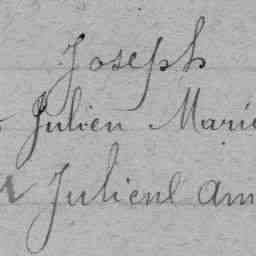 Joseph
Julien Marie
Julienl am